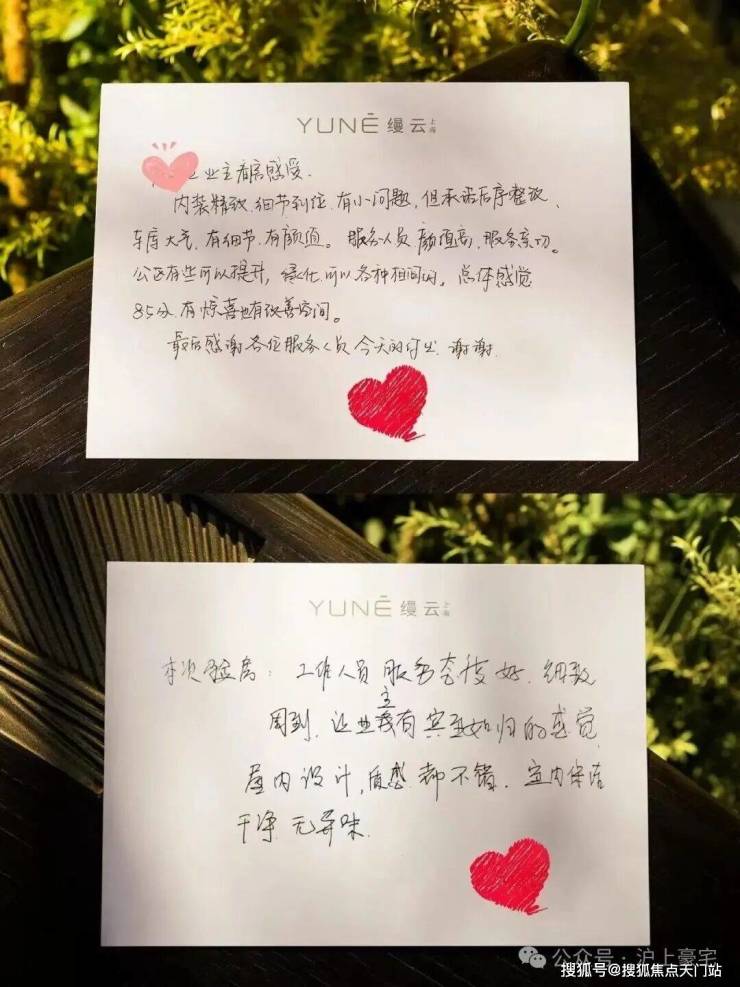 YUNĒ 缦云上海
业主看房感受.
内装精致.细节到位.有小问题,但承诺后序整改、
车库大气.有细节.有颜值。服务人员 颜值高,服务亲切。
公区有些可以提升,绿化可以各种相间的。总体感觉
85分.有惊喜也有改善空间。
最后感谢各位服务人员今天的付出 谢谢.
YUNĒ 缦云上海
本次验房:工作人员服务态度好.细致
周到.让业主有宾至如归的感觉
屋内设计,质感都不错.室内保洁
干净 无异味.
公众号·沪上豪宅
搜狐号@搜狐焦点天门站